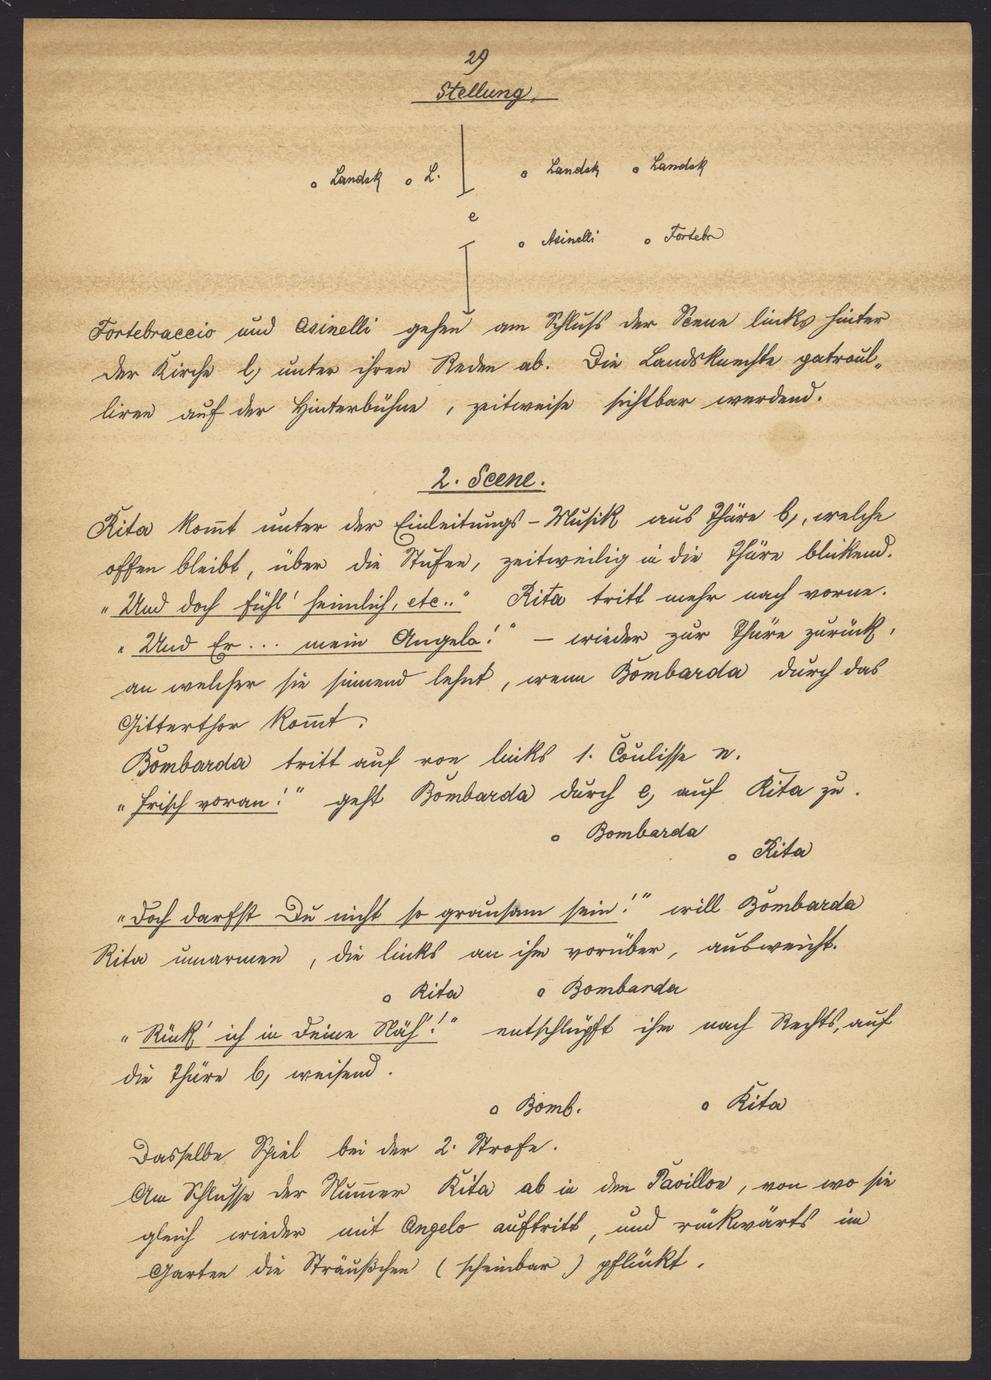 29
Stellung.
o Landsk o L. o Landsk o Landsk
e
o Asinelli o Fortebr
Fortebraccio und Asinelli gehen am Schluß der Scene links hinter
der Kirche l, unter ihren Reden ab. Die Landsknechte patroul„
liren auf der Hinterbühne, zeitweise sichtbar werdend.
2. Scene.
Rita kom̄t unter der Einleitungs-Musik aus Thüre b, welche
offen bleibt, über die Stufen, zeitweilig in die Thüre blickend.
„Und doch fühl' heimlich, etc.." Rita tritt mehr nach vorne.
„Und Er ... mein Angelo!" — wieder zur Thüre zurück,
an welcher sie sinnend lehnt, wenn Bombarda durch das
Gitterthor kom̄t.
Bombarda tritt auf von links 1. Coulisse n.
„Frisch voran!" geht Bombarda durch e, auf Rita zu.
o Bombarda
o Rita
„Doch darfst Du nicht so grausam sein!" will Bombarda
Rita umarmen, die links an ihm vorüber, ausweicht.
o Rita o Bombarda
„Rück' ich in Deine Näh'!" entschlüpft ihm nach Rechts, auf
die Thüre b, weisend.
o Bomb. o Rita
Dasselbe Spiel bei der 2. Strofe.
Am Schlusse der Num̄er Rita ab in den Pavillon, von wo sie
gleich wieder mit Angelo auftritt, und rückwärts im
Garten die Sträußchen (scheinbar) pflückt.